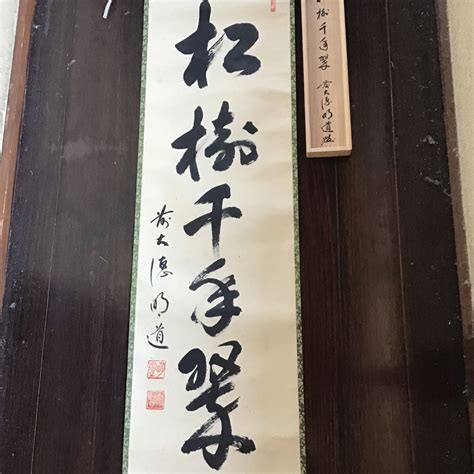 松樹千年翠
前大徳明道
樹千年翠
前大徳明道